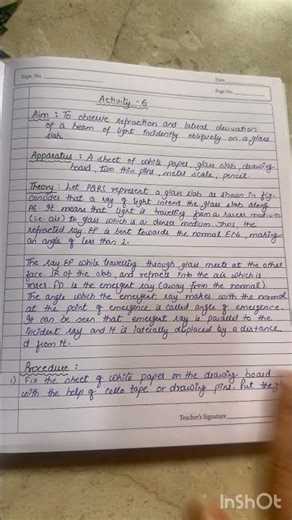 Expt. No.
Date
Page No.
Activity - 6
Aim : To observe refraction and lateral deviation
of a beam of light incidently obliquely on a glass
slab.
Apparatus : A sheet of white paper, glass slab, drawing
board, two thin pins, metal scale, pencil
Theory : Let PQRS represent a glass slab as shown in fig.
consider that a ray of light intens the glass slab along
AE. It means that light is travelling from a rarer medium
(i.e air) to glass which is a denser medium. Thus, the
refracted ray EF is bent towards the normal ENG, making
an angle of less than i.
The ray EF while traveling through glass meets at the other
face of the slab, and refracts into the air which is
rarer. FD is the emergent ray (away from the normal).
The angle which the emergent ray makes with the normal
at the point of emergence is called angle of emergence.
It can be seen that emergent ray is parallel to the
incident ray and it is laterally displaced by a distance
d from it.
Procedure :
1) Fix the sheet of white paper on the drawing board
with the help of cello tape or drawing pins. Put the g
Teacher's Signature
InShOt